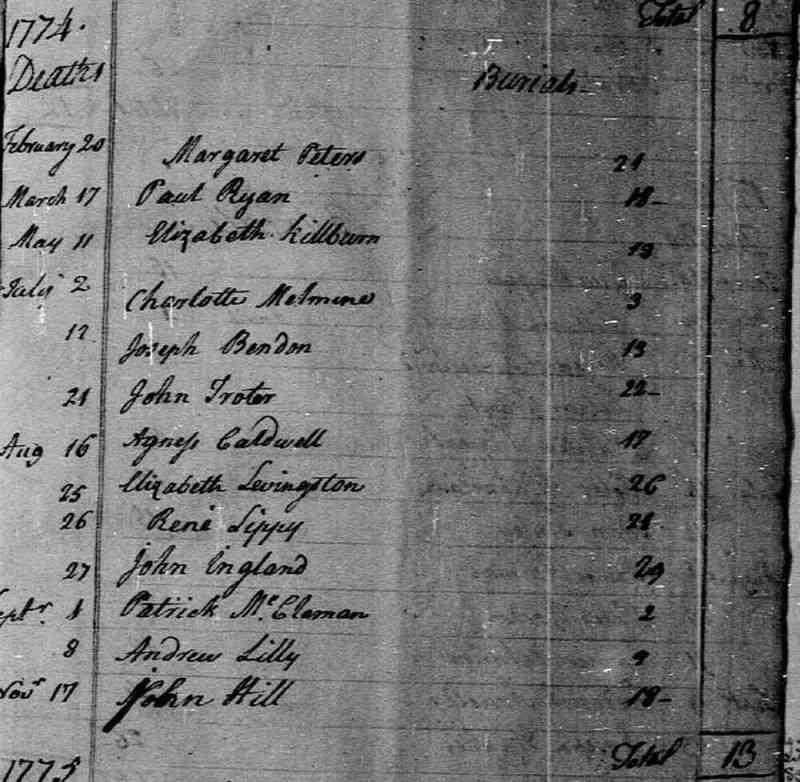 Total 8
1774.
Deaths Burials
February 20 Margaret Peters 21
March 17 Paul Ryan 18
May 11 Elizabeth Killburn 13
July 2 Charlotte Melmene 3
12 Joseph Bendon 13
21 John Troter 22
Aug 16 Agness Caldwell 17
25 Elizabeth Levingston 26
26 René Lippy
27 John England 29
Septr. 1 Patrick Mc. Claman 2
8 Andrew Lilly 9
Novr 17 John Hill 18
Total 13
1775